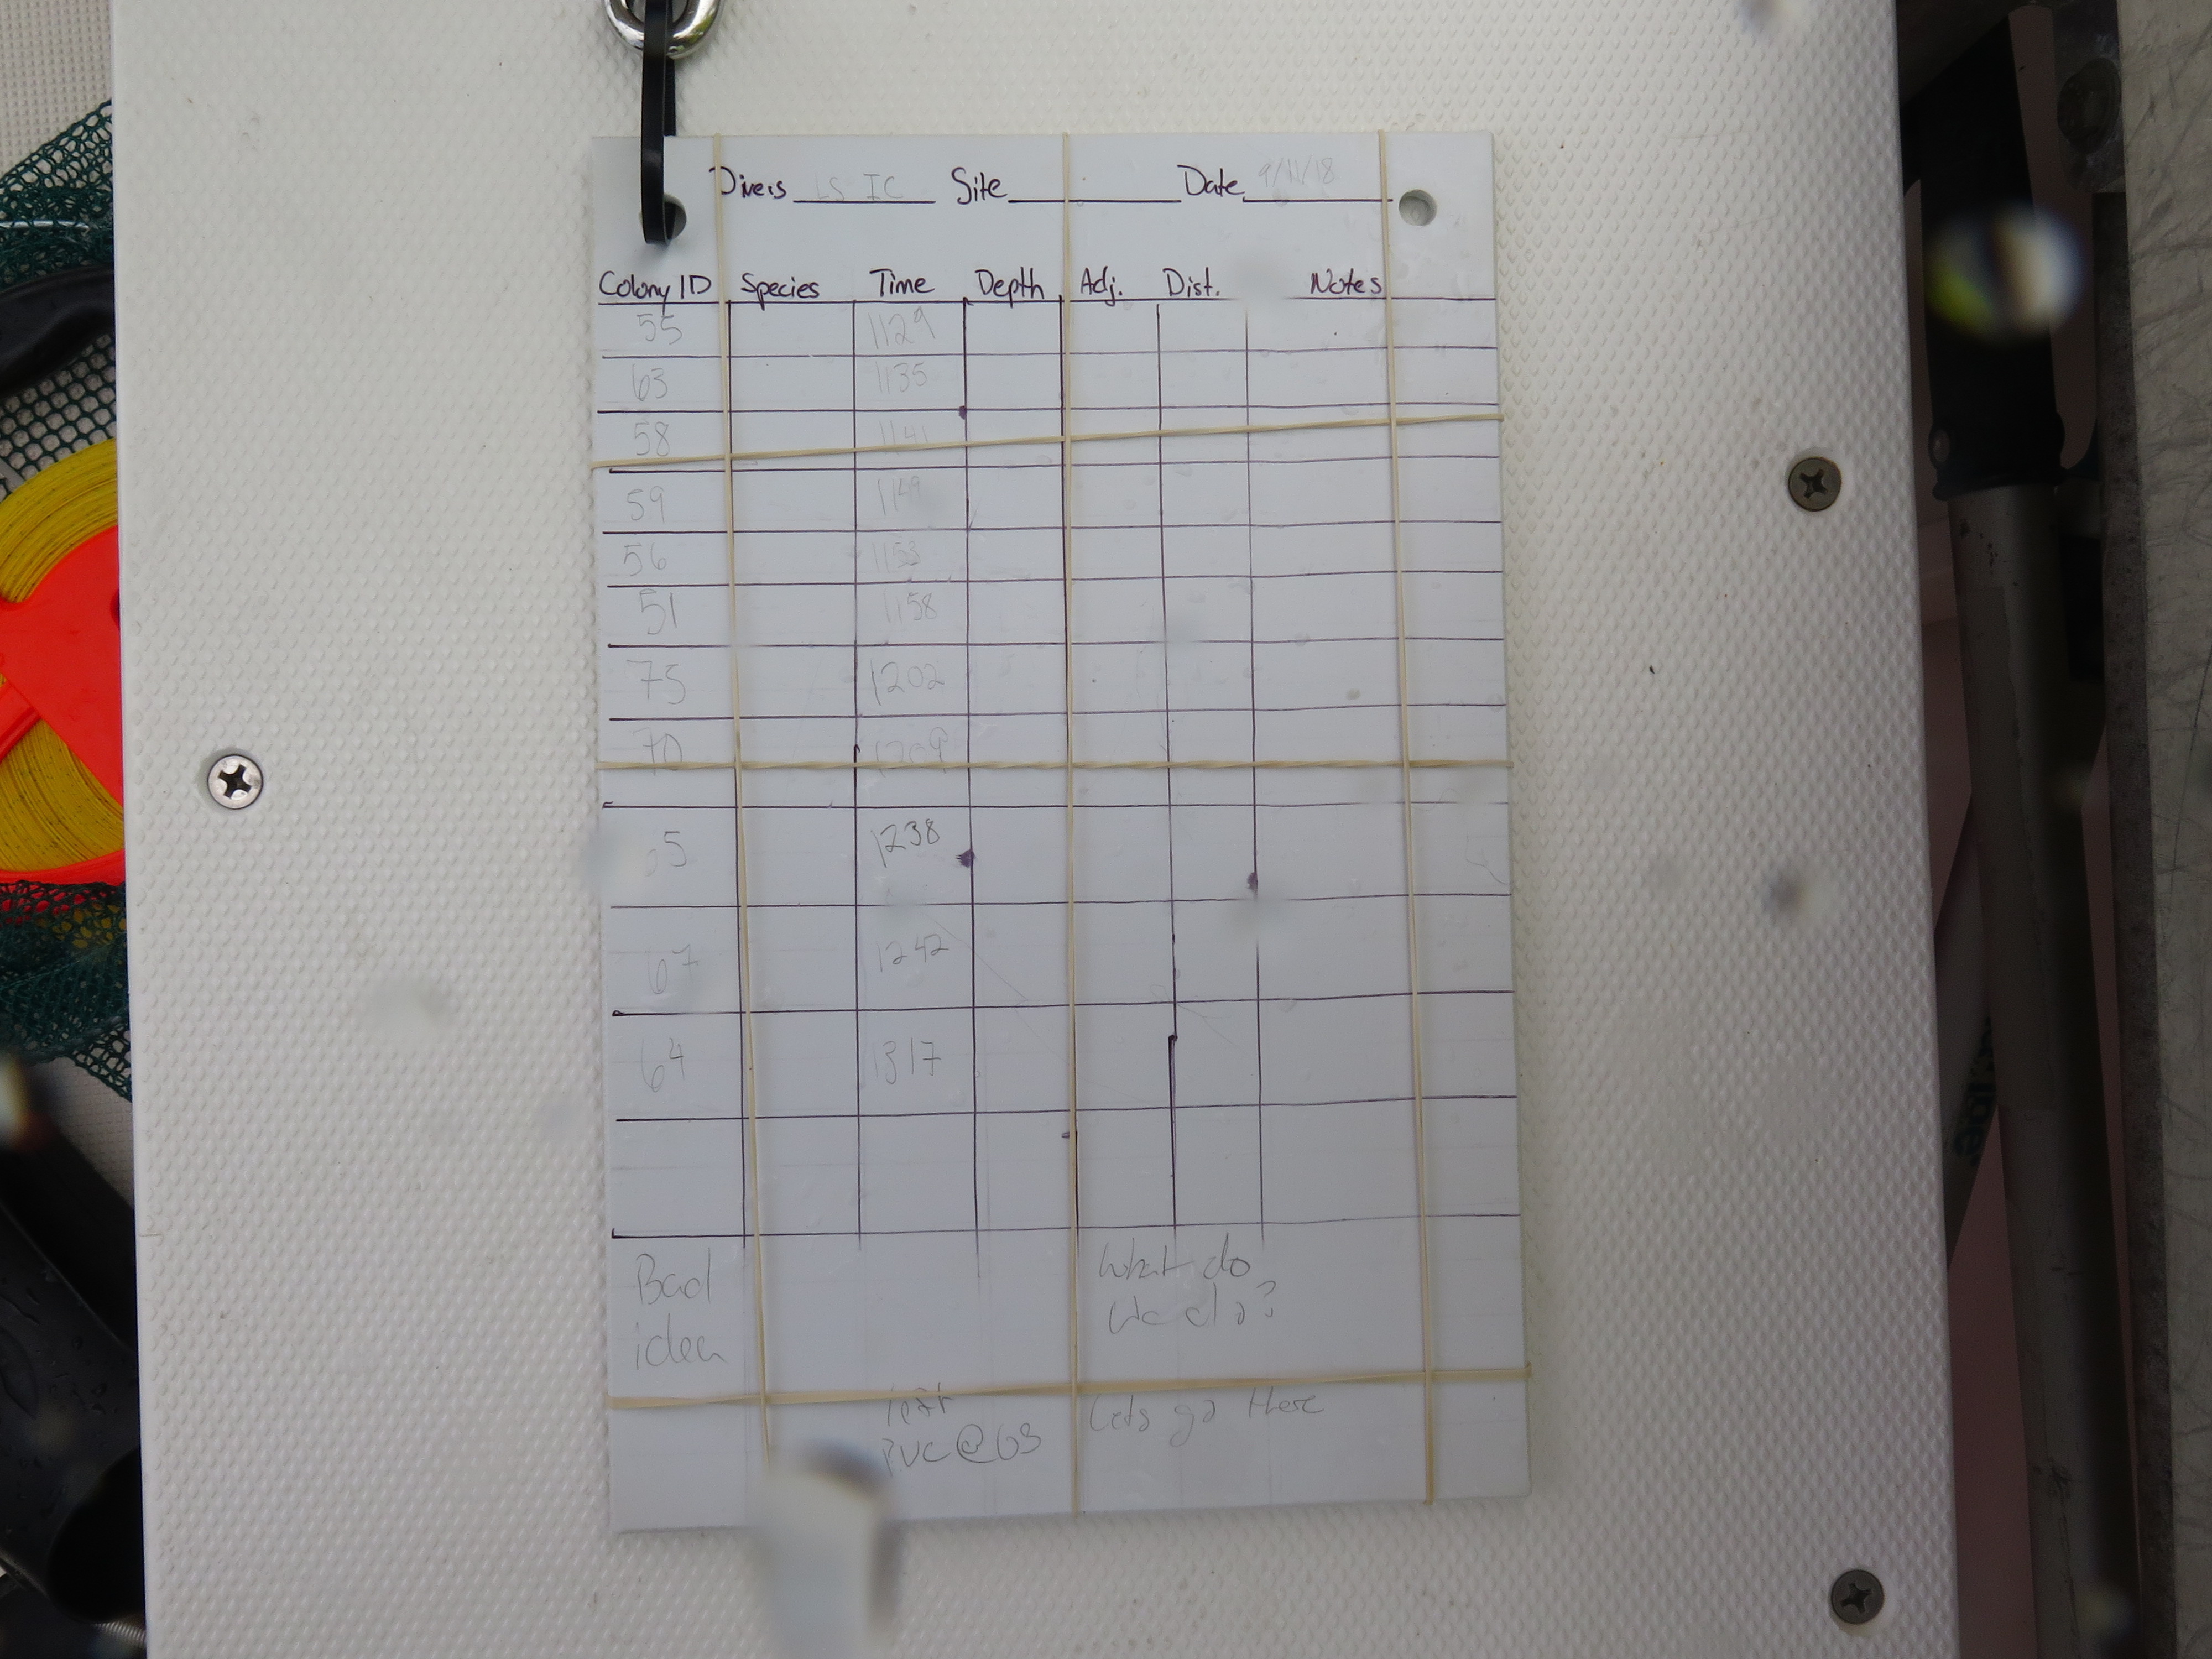 Divers LS IC Site Date 9/11/18
Colony ID Species Time Depth Adj. Dist. Notes
55 1129
63 1135
58 1141
59 1149
56 1153
51 1158
75 1202
70 1209
5 1238
67 1242
64 1317
Bad idea
What do
we do?
PVC @
Lets go there